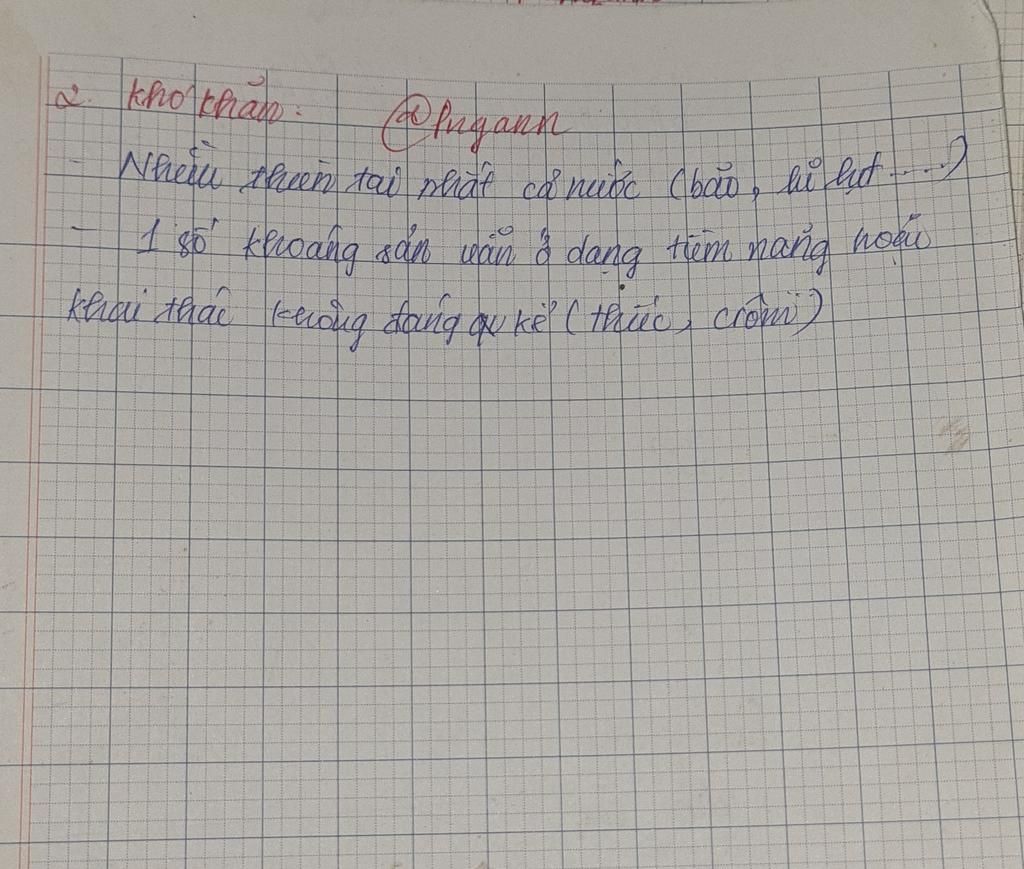 2. Khó khăn: @Pngann
- Nhiều thiên tai nhất cả nước (bão, lũ lụt ....)
- 1 số khoáng sản vẫn ở dạng tiềm năng hoặc
khai thác không đáng kể (thiếc, crôm)